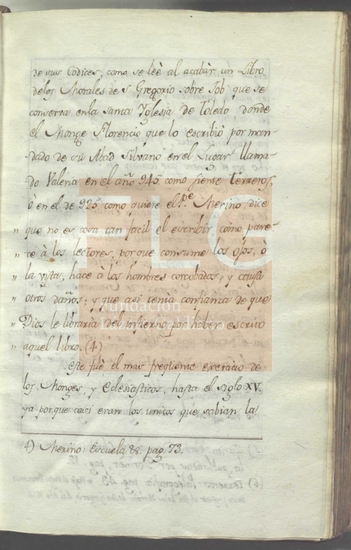 de sus Codices; como se leè al acabar un Libro
de los Morales de Sn. Gregorio sobre Job que se
conserva en la Santa Yglesia de Toledo donde
el Monge Florencio que lo escribiò por man-
dado de su Abad Silvano en el Lugar llama-
do Valeria en el año 945 como siente Terreros,
ò en el de 925 como quiere el Pe. Merino dice
que no es cosa tan facil el escribir como pare-
" ce à los lectores, porque consume los ojos, ò
" la vista, hace à los hombres corcobados, y causa
" otros daños; y que asi tenia confianza de que
" Dios le libraria del infierno por haber escrito
" aquel libro. (4)
Este fuè el mas freqüente exercicio de
los Monges, y Eclesiasticos, hasta el siglo XV
ya porque casi eran los unicos que sabian la
4) Merino: Escuela &c. pag. 73.
Fundación